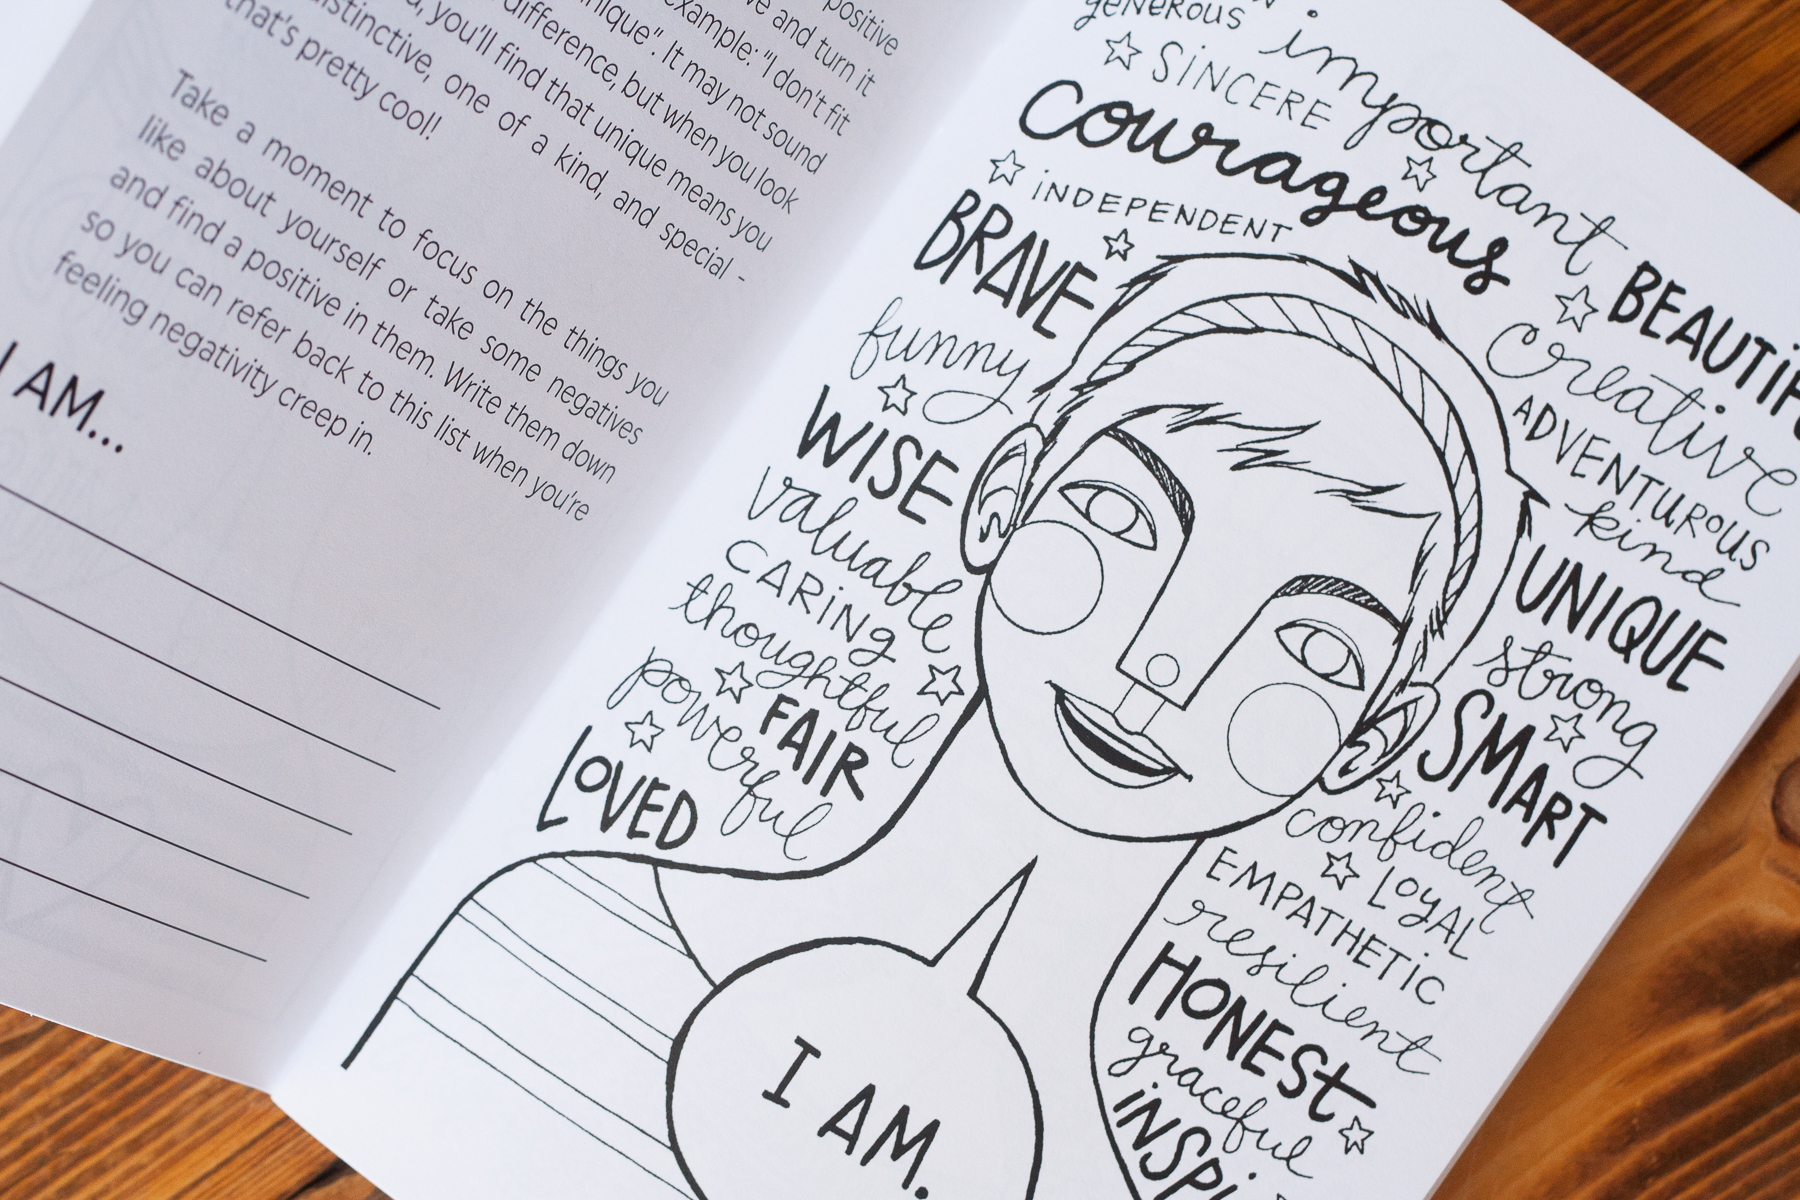 positive
ve and turn it
example: "I don't fit
nique". It may not sound
difference, but when you look
you'll find that unique means you
distinctive, one of a kind, and special -
that's pretty cool!
Take a moment to focus on the things you
like about yourself or take some negatives
and find a positive in them. Write them down
so you can refer back to this list when you're
feeling negativity creep in.
I AM...
generous
important
SINCERE
courageous
INDEPENDENT
BRAVE
funny
WISE
valuable
CARING
thoughtful
FAIR
powerful
LOVED
BEAUTIF
creative
ADVENTUROUS
kind
UNIQUE
strong
SMART
confident
LOYAL
EMPATHETIC
resilient
HONEST
graceful
INSPI
I AM.